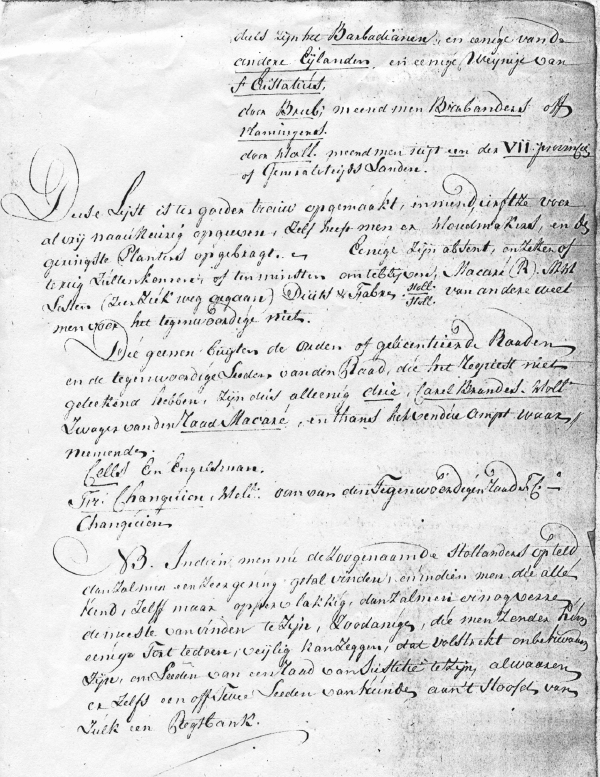 duis zijn het Barbadianen, en eenige van de
andere Eijlanden, en eenige Weijnige van
St Eustatius,
door Brab; meend men Brabanders off
Vlamingers.
door Holl. meend men uijt een der VII provincien
of Generaliteijts Landen.
Deese Lijst is ter goeder trouw opgemaakt, voor
al vrij naauwkeurig opgeven, zelf heeft men er kloudmakers, en de
geringste Planters opgebragt. Eenige zijn absent, onzeker of
terug zullen komen, of ten minsten Macaré (R). Mist
Lesten (zeer ziek weg gegaan) Diuks & Fabre Holl: van andere weet
Holl:
men voor het tegenwoordige niet.
Die geenen buijten de ouden of gelicentieerde Raaden
en de tegenwoordige Leeden van den Raad, die het Request niet
geteekend hebben, zijn duis alleenig drie, Carel Brandes. Holl
Zwager van den Raad Macaré, en thans het vendue ampt waar
nemende.
Cells Een Engelsman.
Fr: Changuion, Holl: van den Tegenwoordigen Raad
Changuion
NB. Indien men nu de zoogenaamde Hollanders opteld
dan zal men een zeer gering getal vinden, en indien men die alle
kend, zelff maar oppervlakkig, dan zal men er nog verre
de meeste van vinden te zijn, zoodanige, die men zonder hun
eenige Tort te doen, veijlig kan zeggen, dat volstrekt onbekwaam
zijn, om Leeden van een Raad van Justitie te zijn, al waaren
er zelfs een off twee Leeden van kunde aan't Hoofd van
zulk een Regtbank.